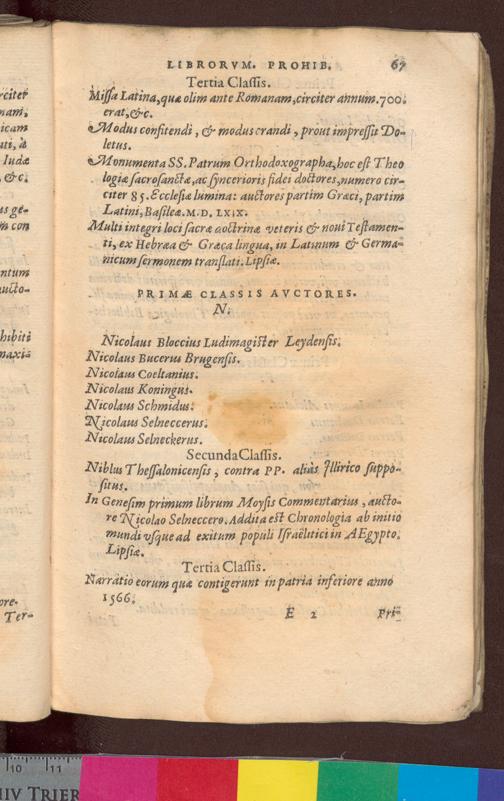 LIBRORVM. PROHIB. 67
Tertia Classis.
Missa Latina, quæ olim ante Romanam, circiter annum. 700.
erat, &c.
Modus confitendi, & modus crandi, prout impressit Do-
letus.
Monumenta SS. Patrum Orthodoxographa, hoc est Theo
logiæ sacrosanctæ, ac syncerioris fidei doctores, numero cir-
citer 85. Ecclesiæ lumina: auctores partim Græci, partim
Latini, Basileæ. M.D. LXIX.
Multi integri loci sacræ doctrinæ veteris & noui Testamen-
ti, ex Hebræa & Græca lingua, in Latinum & Germa-
nicum sermonem translati. Lipsiæ.
PRIMÆ CLASSIS AVCTORES.
N.
Nicolaus Bloccius Ludimagister Leydensis.
Nicolaus Bucerus Brugensis.
Nicolaus Coeltanius.
Nicolaus Koningus.
Nicolaus Schmidus.
Nicolaus Selneccerus.
Nicolaus Selneckerus.
Secunda Classis.
Niblus Thessalonicensis, contra PP. alias Illirico suppo-
situs.
In Genesim primum librum Moysis Commentarius, aucto-
re Nicolao Selneccero. Addita est Chronologia ab initio
mundi vsque ad exitum populi Israëlitici in AEgypto.
Lipsiæ.
Tertia Classis.
Narratio eorum quæ contigerunt in patria inferiore anno
1566.
E 2 Pri-
rciter
nam,
icam
uti, a
Iudæ
, &c.
us ge-
m con
ntum
aucto-
hibiti
maxia
ore.
Ter-
10 11
HIV TRIER